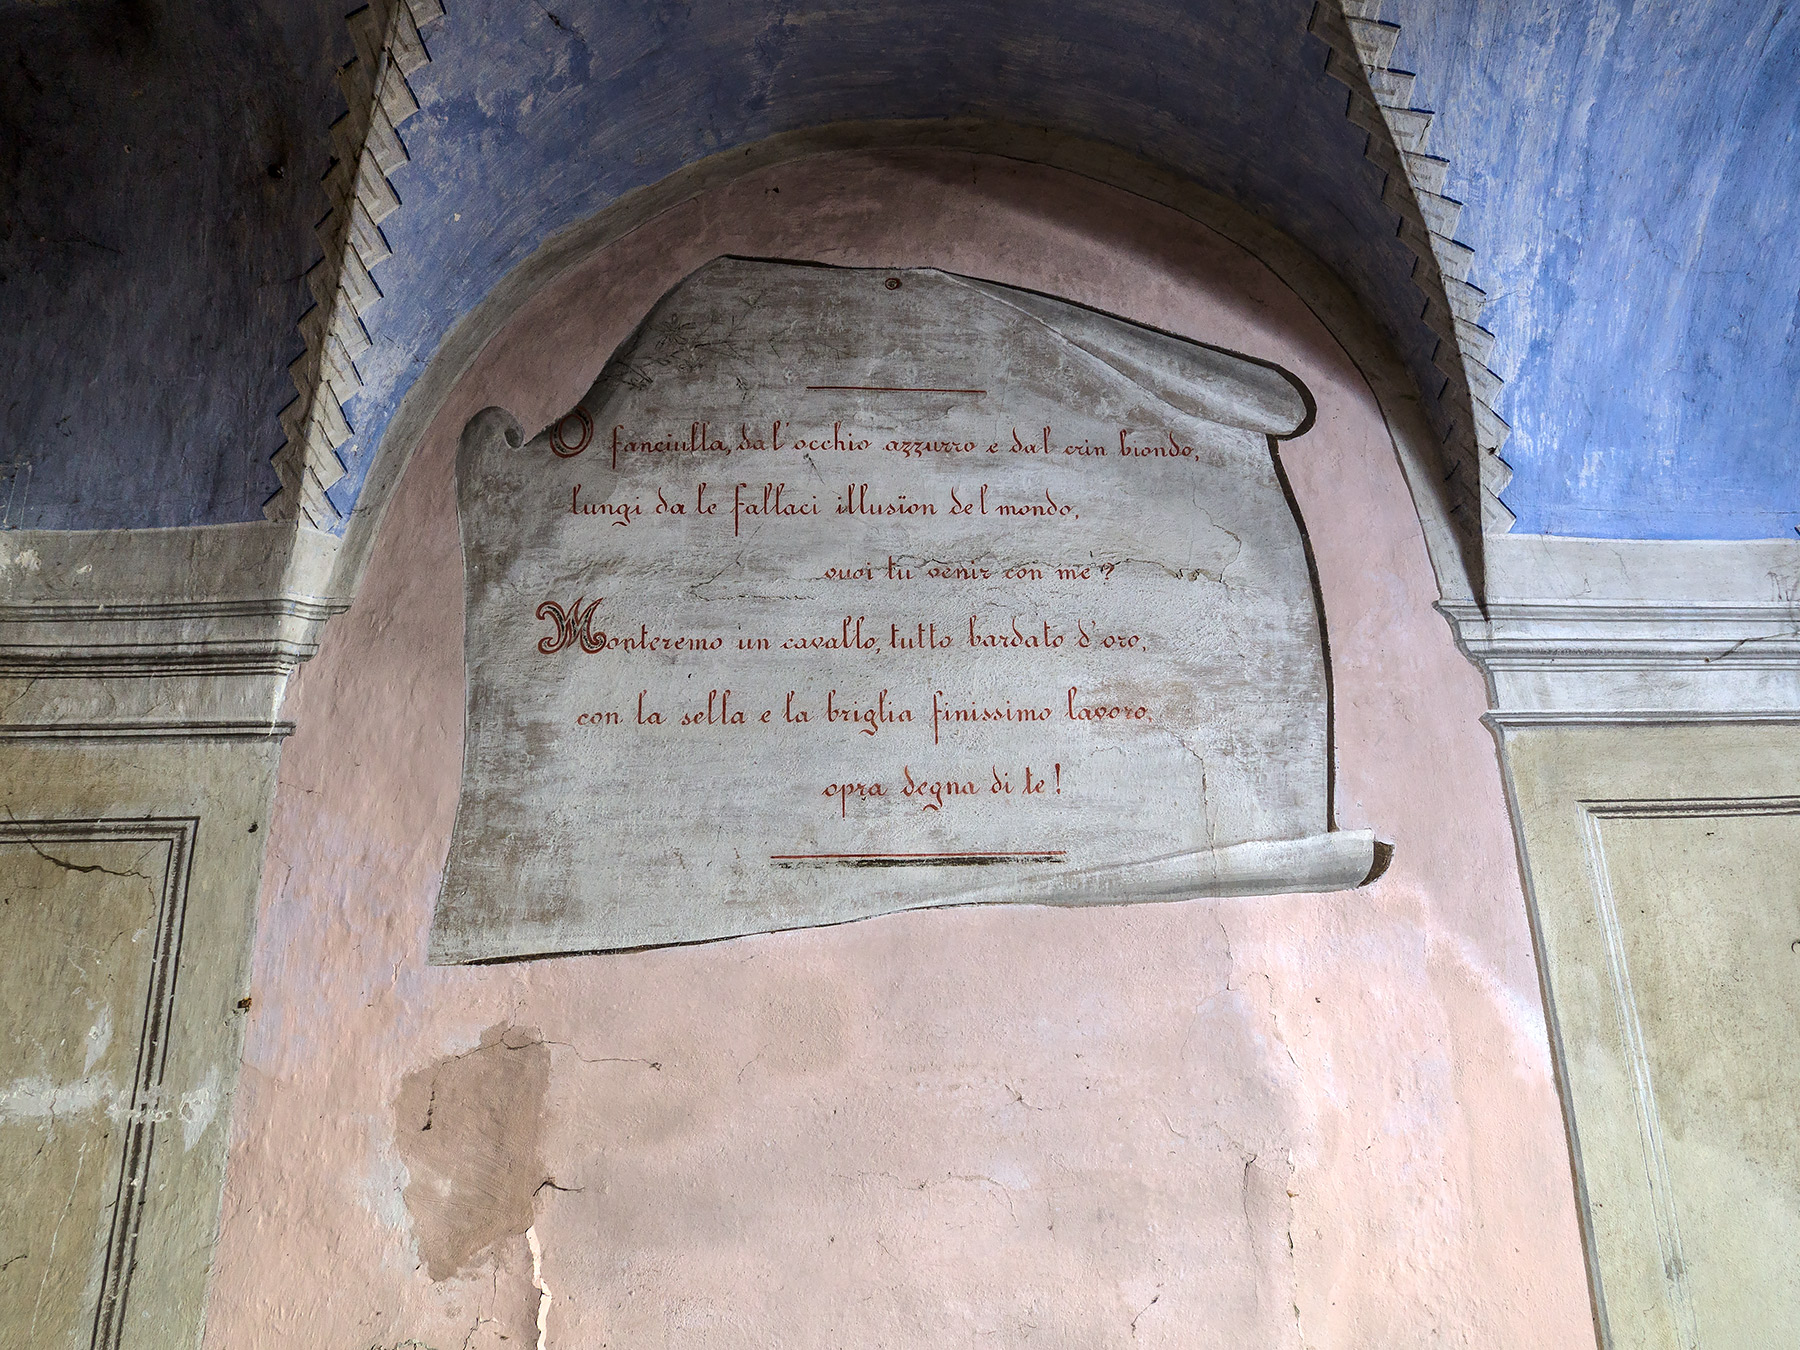 O fanciulla, dal'occhio azzurro e dal crin biondo,
lungi da le fallaci illusïon del mondo,
vuoi tu venir con me?
Monteremo un cavallo, tutto bardato d'oro,
con la sella e la briglia finissimo lavoro,
opra degna di te!